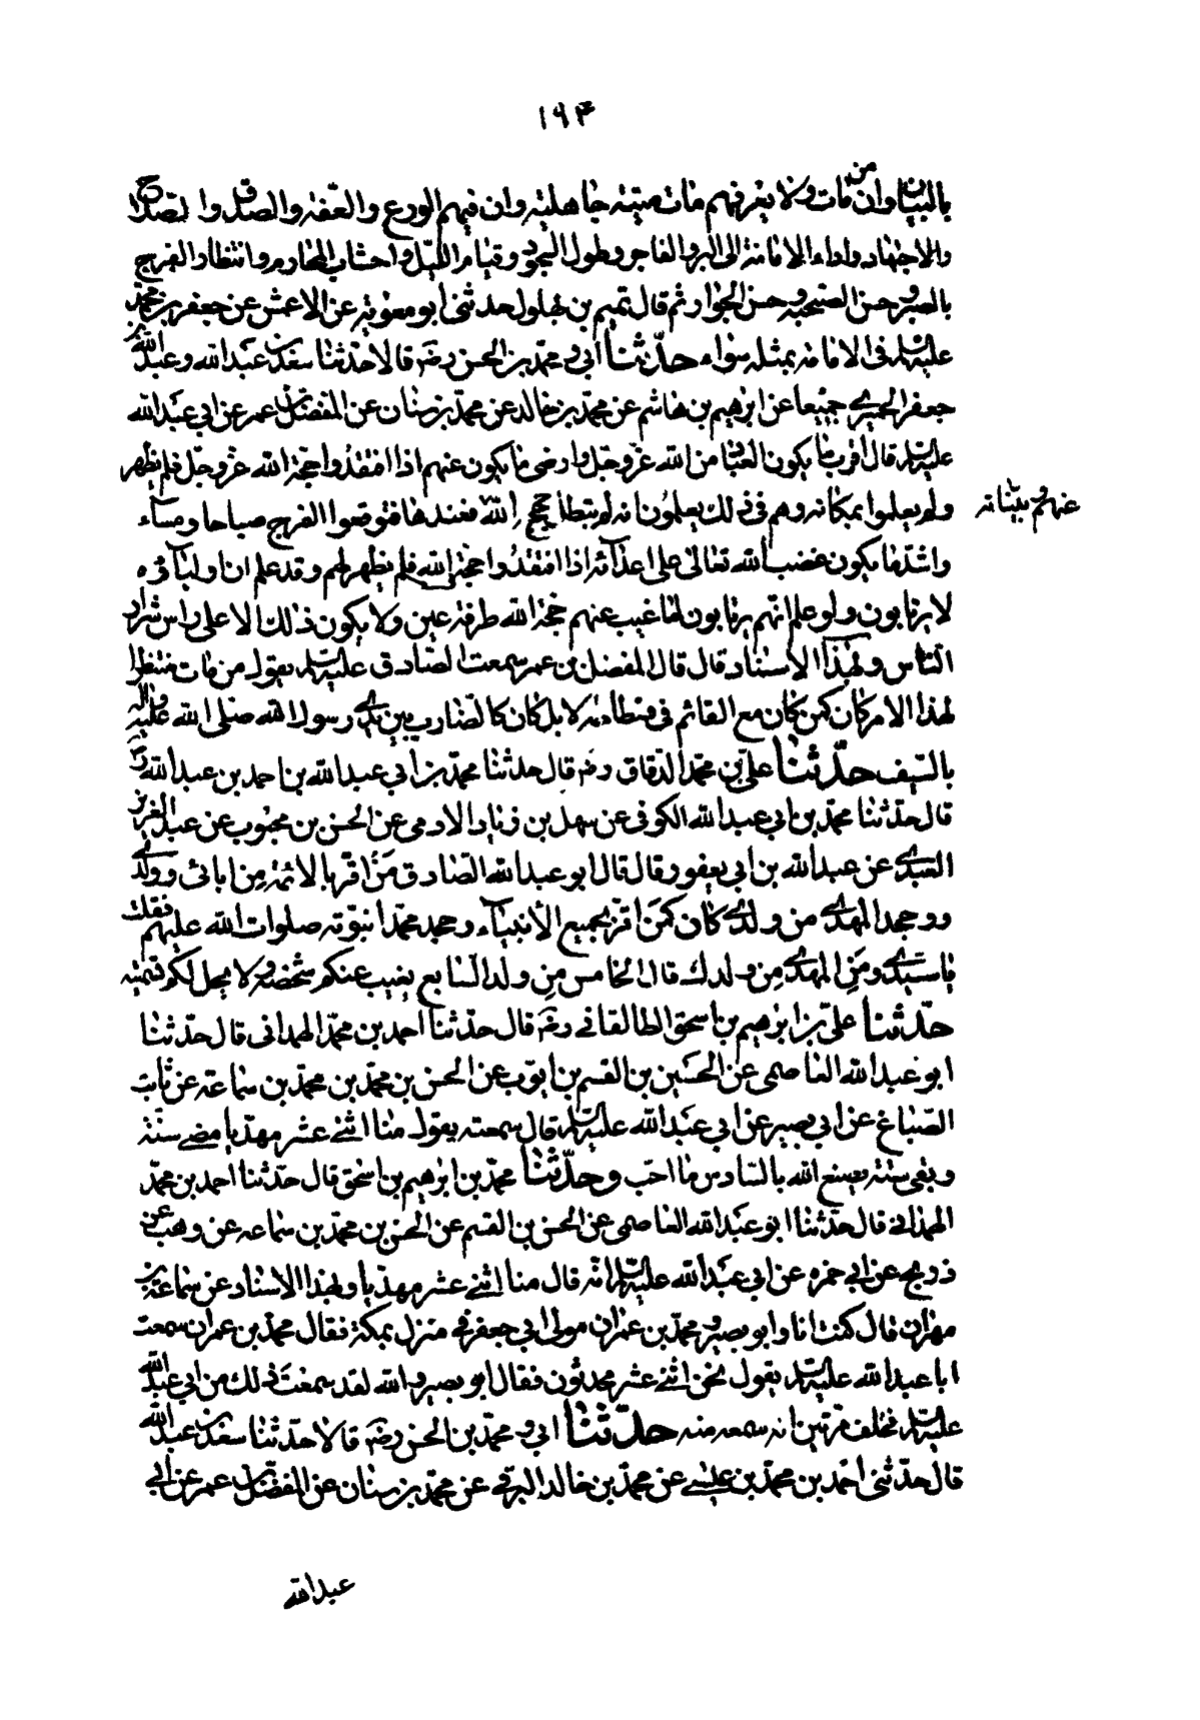 ١٩٣
بالبيان وان من مات ولا يعرفهم مات ميتة جاهلية وان فيهم الورع والعفة والصدق والصلاح
والاجتهاد واداء الامانة الى البر والفاجر وطول السجود وقيام الليل واجتناب المحارم وانتظار الفرج
بالصبر وحسن الصحبة وحسن الجوار ثم قال تميم بن بهلول حدثنى ابو معوية عن الاعمش عن جعفر بن محمد
عليه السلم فى الامامة بمثله سواء حدثنا ابى و محمد بن الحسن رضه قالا حدثنا سعد بن عبد الله وعبد الله بن
جعفر الحميرى جميعا عن ابرهيم بن هاشم عن محمد بن خالد عن محمد بن سنان عن المفضل بن عمر عن ابى عبد الله
عليه السلم قال اقرب ما يكون العباد من الله عز وجل وارضى ما يكون عنهم اذا افتقدوا حجة الله عز وجل فلم يظهر
ولم يعلموا بمكانه وهم فى ذلك يعلمون انه لم يبطل حجج الله فعندها فتوقعوا الفرج صباحا و مساء
عنهم و بيناته
واشد ما يكون غضب الله تعالى على اعدائه اذا افتقدوا حجة الله فلم يظهر لهم وقد علم ان اوليائه
لا يرتابون ولو علم انهم يرتابون لما غيب عنهم حجة الله طرفة عين ولا يكون ذلك الا على راس شرار
الناس وبهذا الاسناد قال قال المفضل بن عمر سمعت الصادق عليه السلم يقول من مات منتظرا
لهذا الامر كان كمن كان مع القائم فى فسطاطه لا بل كان كالضارب بين يدى رسول الله صلى الله عليه واله
بالسيف حدثنا على بن محمد الدقاق رضه قال حدثنا محمد بن ابى عبد الله بن احمد بن عبد الله
قال حدثنا محمد بن ابى عبد الله الكوفى عن سهل بن زياد الادمى عن الحسن بن محبوب عن عبد العزيز
العبدى عن عبد الله بن ابى يعفور قال قال ابو عبد الله الصادق من اقر بالائمة من ابائى وولدى
و وجحد المهدى من ولدى كان كمن اقر بجميع الأنبياء وجحد محمدا نبوته صلوات الله عليهم فقلت
ياسيدى ومن المهدى من ولدك قال الخامس من ولد السابع يغيب عنكم شخصه ولا يحل لكم تسميته
حدثنا على بن ابرهيم بن اسحق الطالقانى رضه قال حدثنا احمد بن محمد الهمدانى قال حدثنا
ابو عبد الله العاصمى عن الحسين بن القسم بن ايوب عن الحسن بن محمد بن محمد بن سماعة عن ثابت
الصباغ عن ابى بصير عن ابى عبد الله عليه السلم قال سمعته يقول منا اثنى عشر مهديا مضى ستة
وبقى ستة يصنع الله بالسادس ما احب وحدثنا محمد بن ابرهيم بن اسحق قال حدثنا احمد بن محمد
الهمدانى قال حدثنا ابو عبد الله العاصمى عن الحسن بن القسم عن الحسن بن محمد بن سماعه عن وهب عن
ذريح عن ابى حمزه عن ابى عبد الله عليه السلم انه قال منا اثنى عشر مهديا وبهذا الاسناد عن سماعة بن
مهران قال كنت انا وابو بصير و محمد بن عمران مولى ابى جعفر فى منزل بمكة فقال محمد بن عمران سمعت
ابا عبد الله عليه السلم يقول نحن اثنى عشر محدثون فقال ابو بصير والله لقد سمعت ذلك من ابى عبد الله
عليه السلم فحلف مرتين انه سمعه منه حدثنا ابى و محمد بن الحسن رضه قالا حدثنا سعد بن عبد الله
قال حدثنى احمد بن محمد بن عيسى عن محمد بن خالد البرقى عن محمد بن سنان عن المفضل بن عمر عن ابى
عبد الله